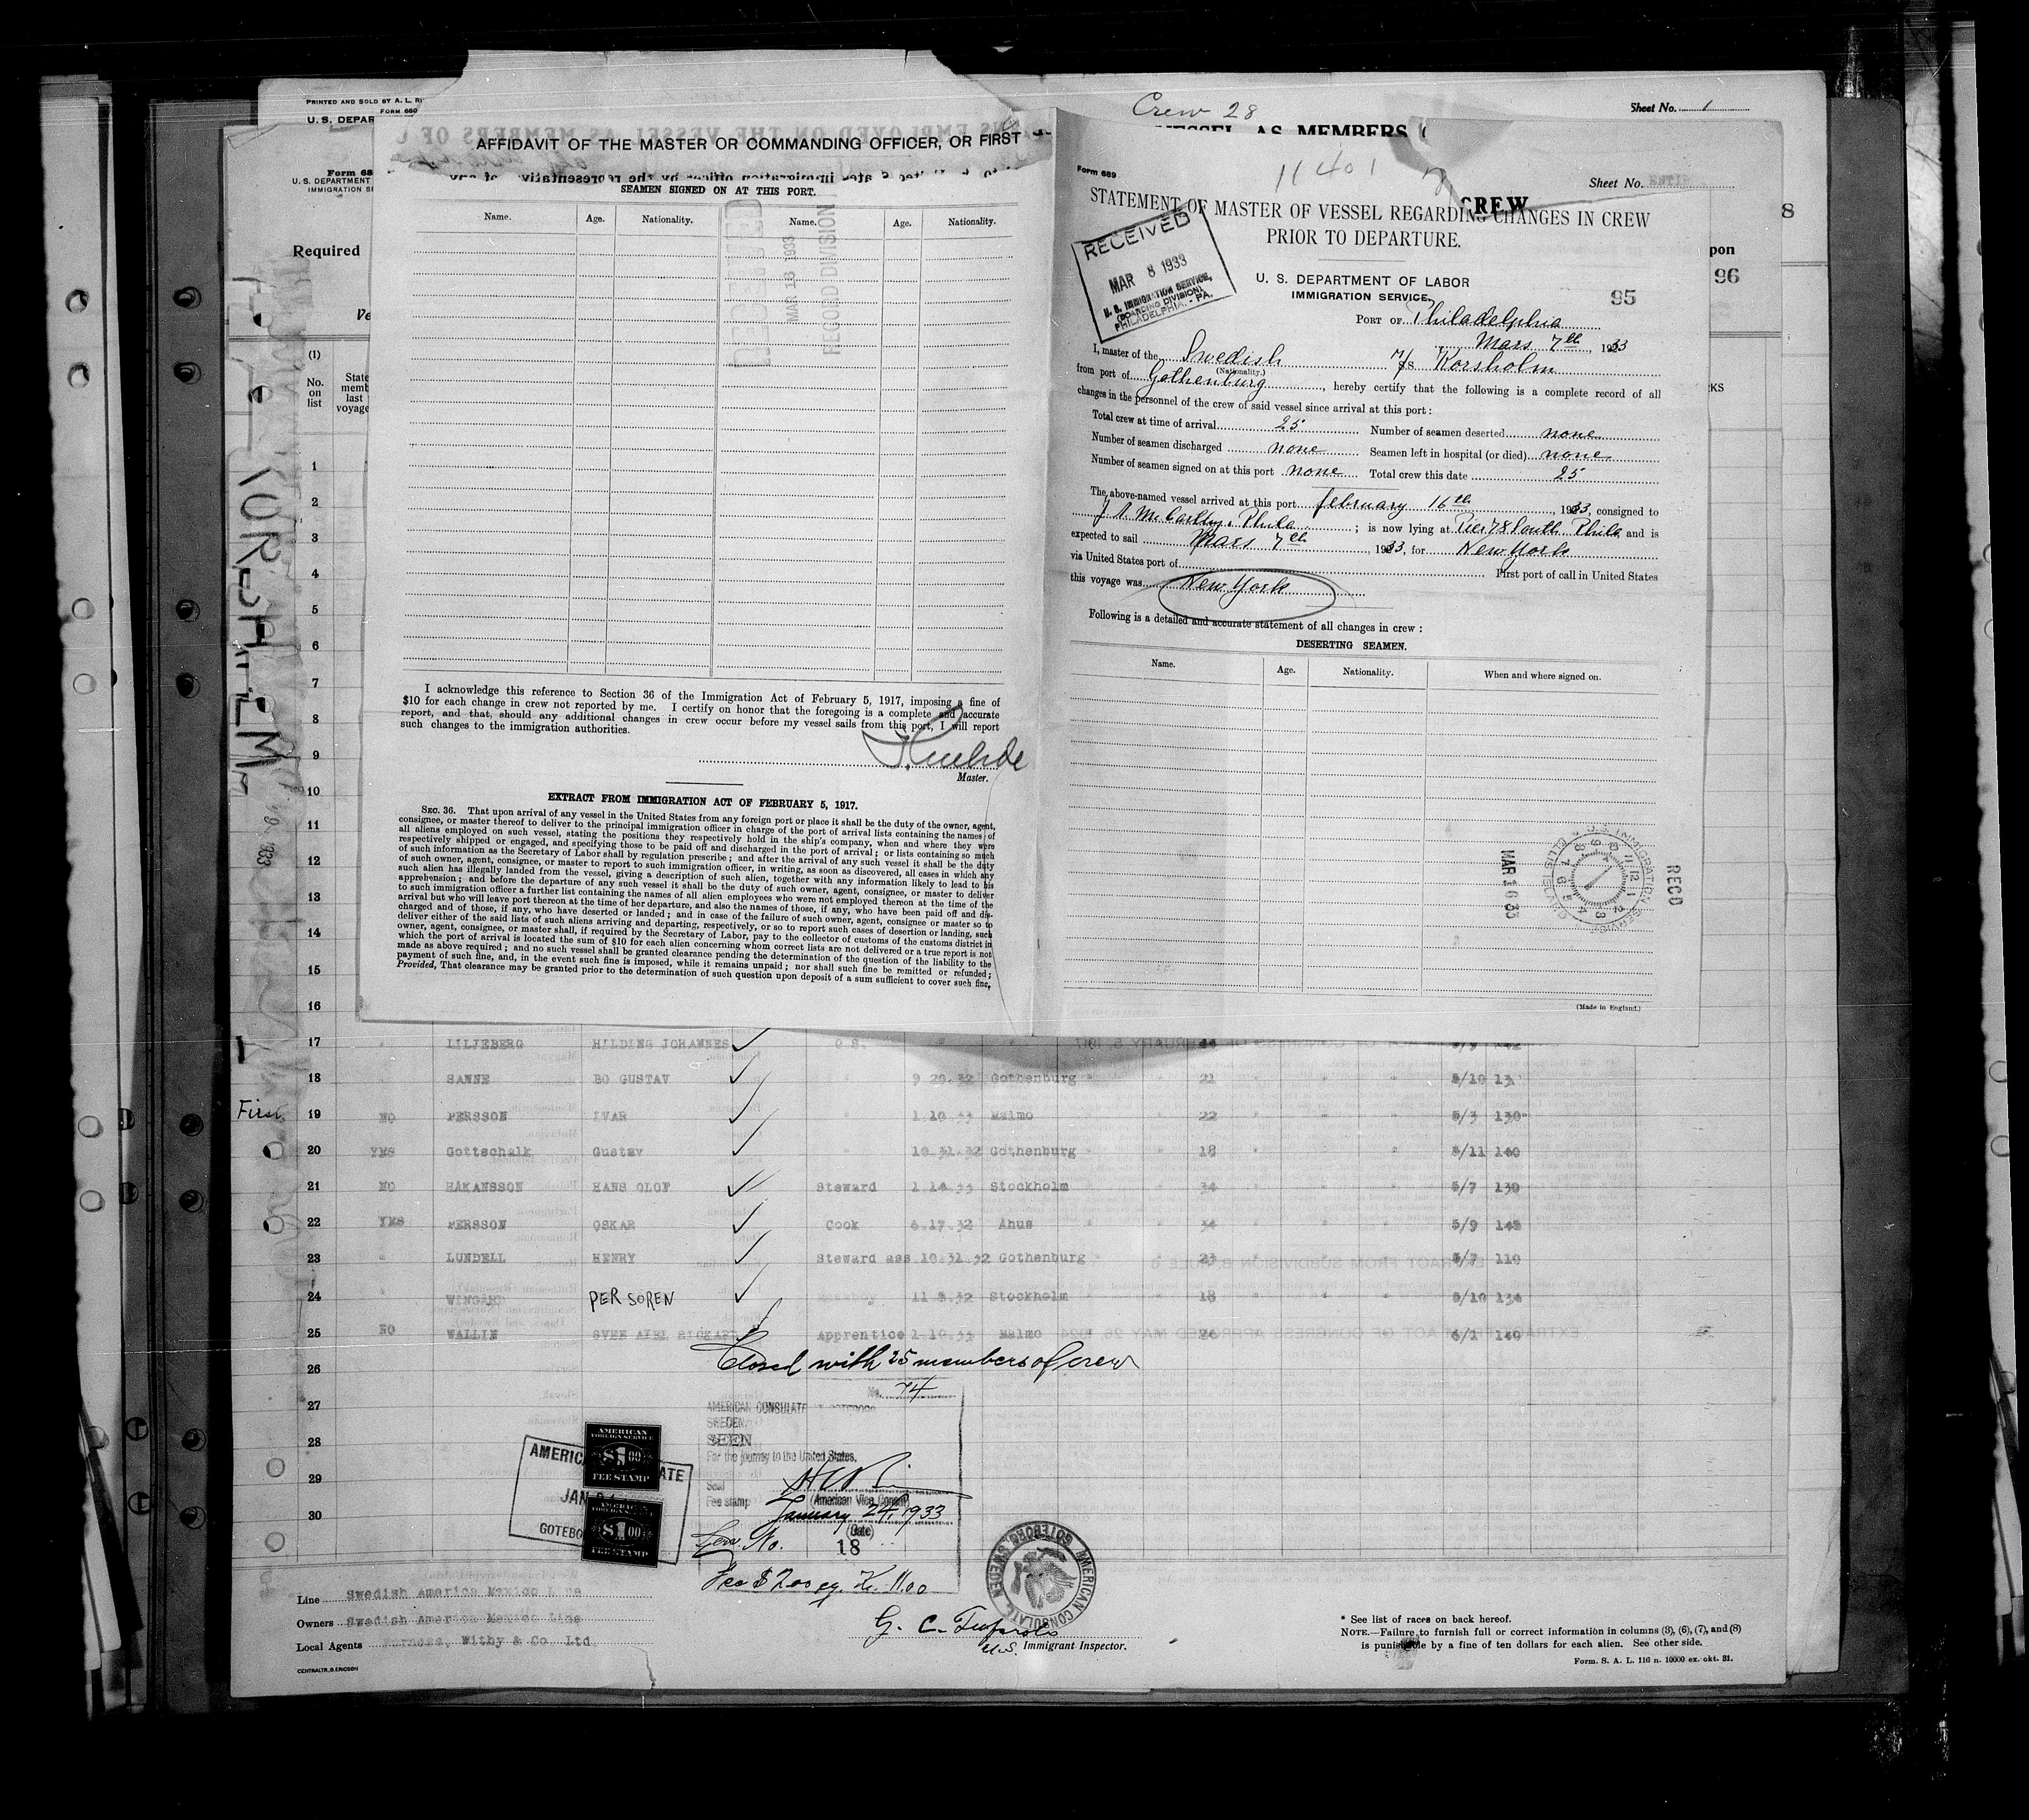 PRINTED AND SOLD BY A. L.
FORM 680
U. S. DEPAR
Crew 28
Sheet No. 1
VESSEL AS MEMBERS
CREW
Form 68
U. S. DEPARTMENT
IMMIGRATION SE
Required
pon
96
8
(1)
No.
on
list
State
memb
last
voyage
RKS
AFFIDAVIT OF THE MASTER OR COMMANDING OFFICER, OR FIRST
SEAMEN SIGNED ON AT THIS PORT.
Name. Age. Nationality. Name. Age. Nationality.
MAR 16 1933
RECORD DIVISION
I acknowledge this reference to Section 36 of the Immigration Act of February 5, 1917, imposing a fine of
$10 for each change in crew not reported by me. I certify on honor that the foregoing is a complete and accurate
report, and that, should any additional changes in crew occur before my vessel sails from this port, I will report
such changes to the immigration authorities.
Master.
EXTRACT FROM IMMIGRATION ACT OF FEBRUARY 5, 1917.
SEC. 36. That upon arrival of any vessel in the United States from any foreign port or place it shall be the duty of the owner, agent,
consignee, or master thereof to deliver to the principal immigration officer in charge of the port of arrival lists containing the names of
all aliens employed on such vessel, stating the positions they respectively hold in the ship's company, when and where they were
respectively shipped or engaged, and specifying those to be paid off and discharged in the port of arrival; or lists containing so much
of such information as the Secretary of Labor shall by regulation prescribe; and after the arrival of any such vessel it shall be the duty
of such owner, agent, consignee, or master to report to such immigration officer, in writing, as soon as discovered, all cases in which any
such alien has illegally landed from the vessel, giving a description of such alien, together with any information likely to lead to his
apprehension; and before the departure of any such vessel it shall be the duty of such owner, agent, consignee, or master to deliver
to such immigration officer a further list containing the names of all alien employees who were not employed thereon at the time of the
arrival but who will leave port thereon at the time of her departure, and also the names of those, if any, who have been paid off and dis-
charged and of those, if any, who have deserted or landed; and in case of the failure of such owner, agent, consignee or master so to
deliver either of the said lists of such aliens arriving and departing, respectively, or so to report such cases of desertion or landing, such
owner, agent, consignee, or master shall, if required by the Secretary of Labor, pay to the collector of customs of the customs district in
which the port of arrival is located the sum of $10 for each alien concerning whom correct lists are not delivered or a true report is not
made as above required; and no such vessel shall be granted clearance pending the determination of the question of the liability to the
payment of such fine, and, in the event such fine is imposed, while it remains unpaid; nor shall such fine be remitted or refunded;
Provided, That clearance may be granted prior to the determination of such question upon deposit of a sum sufficient to cover such fine,
Form 689
11401
Sheet No.
STATEMENT OF MASTER OF VESSEL REGARDING CHANGES IN CREW
PRIOR TO DEPARTURE.
RECEIVED
MAR 8 1933
U. S. IMMIGRATION SERVICE,
(BOARDING DIVISION)
PHILADELPHIA, - PA.
U. S. DEPARTMENT OF LABOR
IMMIGRATION SERVICE
95
PORT OF Philadelphia
Mars 7th, 1933
I, master of the Swedish M/S Korsholm
(Nationality.)
from port of Gothenburg, hereby certify that the following is a complete record of all
changes in the personnel of the crew of said vessel since arrival at this port:
Total crew at time of arrival 25 Number of seamen deserted none
Number of seamen discharged none Seamen left in hospital (or died) none
Number of seamen signed on at this port none Total crew this date 25
The above-named vessel arrived at this port february 16th, 1933, consigned to
J A McCarthy, Phila; is now lying at Pier 78 South Phila and is
expected to sail Mars 7th, 1933, for New York
via United States port of First port of call in United States
this voyage was New York
Following is a detailed and accurate statement of all changes in crew:
DESERTING SEAMEN.
Name. Age. Nationality. When and where signed on.
MAR 16 33
REC'D
U.S. IMMIGRATION SERVICE
(Made in England.)
1
2
3
4
5
6
7
8
9
10
11
12
13
14
15
16
17 " LILJEBERG HILDING JOHANNES O.S. 5/9
18 SANNE BO GUSTAV " 9.20.32 Gothenburg 21 5/10
First
19 NO PERSSON IVAR " 1.10.33 Malmo 22 5/3 130
20 YES Gottschalk Gustav " 10.31.32 Gothenburg 18 5/11 140
21 NO HAKANSSON HANS OLOF Steward Stockholm 34 5/7 130
22 YES PERSSON OSKAR Cook 6.17.32 Ahus 34 5/9 145
23 " LUNDELL HENRY Steward ass 10.31.32 Gothenburg 23 5/7 110
24 " PER SOREN Stockholm 18 5/10 134
25 NO WALLIN SVEN AXEL RICKARD Apprentice 1-10.33 Malmo 6/1 140
26
27
28
29
30
Closed with 25 members of crew
No. 74
AMERICAN CONSULATE
SWEDEN.
SEEN
For the journey to the United States.
Seal
Fee stamp
(American Vice Consul)
January 24, 1933
(Date)
Serv. No. 18
Fee $2.00 eq. Kr. 11.00
AMERICAN
FOREIGN SERVICE
$1.00
FEE STAMP
AMERICAN
FOREIGN SERVICE
$1.00
FEE STAMP
AMERIC ATE
JAN
GOTEBO
AMERICAN CONSULATE
GOTEBORG, SWEDEN
Line Swedish America Mexico Line
Owners Swedish America Mexico Line
Local Agents Furness, Withy & Co. Ltd
CENTRALTR. G. ERICSON
U.S. Immigrant Inspector.
* See list of races on back hereof.
NOTE.—Failure to furnish full or correct information in columns (3), (6), (7), and (8)
is punishable by a fine of ten dollars for each alien. See other side.
Form. S. A. L. 116 n. 10000 ex. okt. 31.